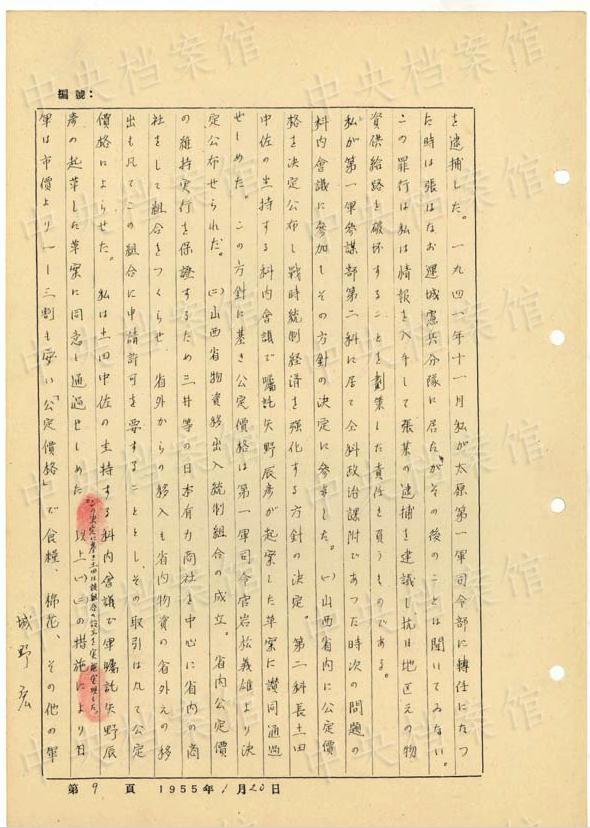 編號:
を逮捕した。一九四一年十一月私が太原第一軍司令部に轉任になつ
た時は張はなお運城憲兵分隊に居たがその後のことは聞いてみない。
この罪行は私は情報を入手して張某の逮捕を建議し抗日地区えの物
資供給路を破坏することを劃策した責任を負うものである。
私が第一軍参謀部第二科に居て全科政治課附であつた時次の問題の
科内會議に参加しその方針の決定に参与した。(一)山西省内に公定價
格を決定公布し戰時統制経済を強化する方針の決定。第二科長土田
中佐の主持する科内會議で囑託矢野辰彦が起案した草案に讃同通過
せしめた。この方針に基き公定價格は第一軍司令官岩松義雄より決
定公布せられた。(二)山西省物資移出入統制組合の成立。省内公定價
の維持実行を保證するため三井等の日本有力商社を中心に省内の商
社をして組合をつくらせ、省外からの移入も省内物資の省外えの移
出も凡てこの組合に申請許可を要することとし、その取引は凡て公定
價格によらせた。私は土田中佐の主持する科内會議で軍囑託矢野辰
彦の起草した草案に同意し通過せしめた 以上(一)(二)の措施により日
この決定に基き土田は該組合の設立を実現した。
軍は市價より一ー三割も安い「公定價格」で食糧、棉花、その他の軍
城野宏
第 9 頁 1955年 1月 20日
中央档案馆